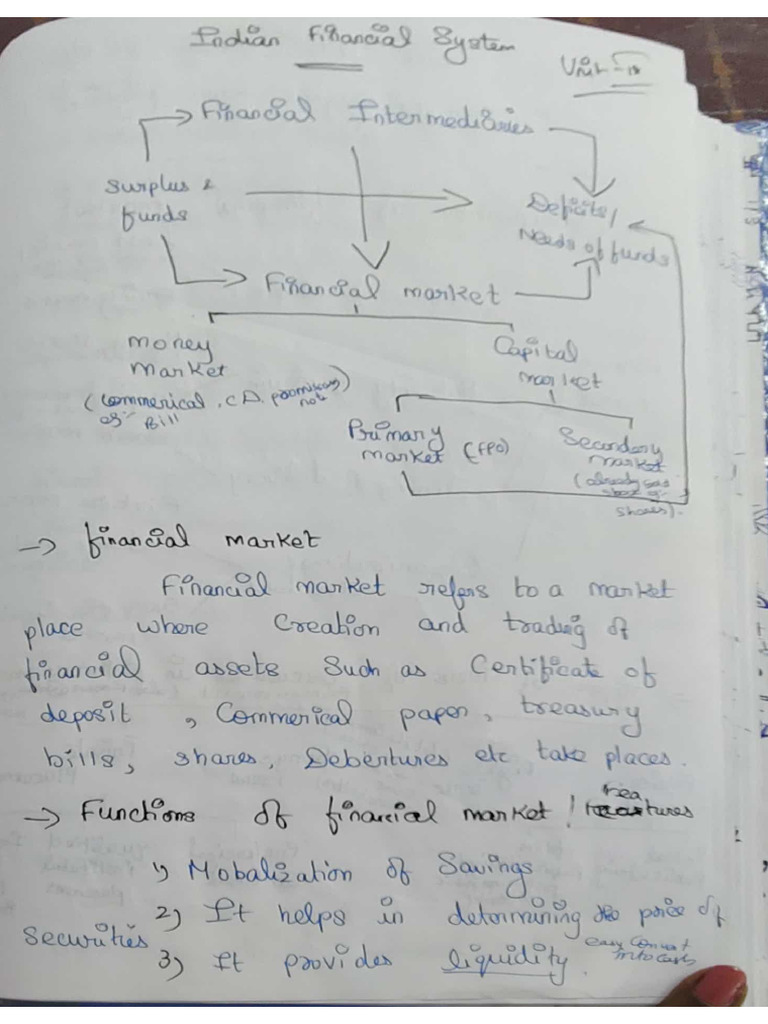 Indian Financial System
Unit -
Financial Intermediaries
Surplus
funds
Deficits/
Needs of funds
Financial market
money
market
Capital
market
(Commerical
Bill
C.D. promissory
note)
Primary
market (FPO)
Secondary
market
(already
shares).
→ financial market
Financial market refers to a market
place where Creation and trading of
financial assets Such as Certificate of
deposit, Commerical paper, treasury
bills, shares, Debertures etc take places.
→ Functions of financial market / features
1) Mobalization of Savings
2) It helps in determining the price of
securities
3) It provides liquidity easy Convert
into cash